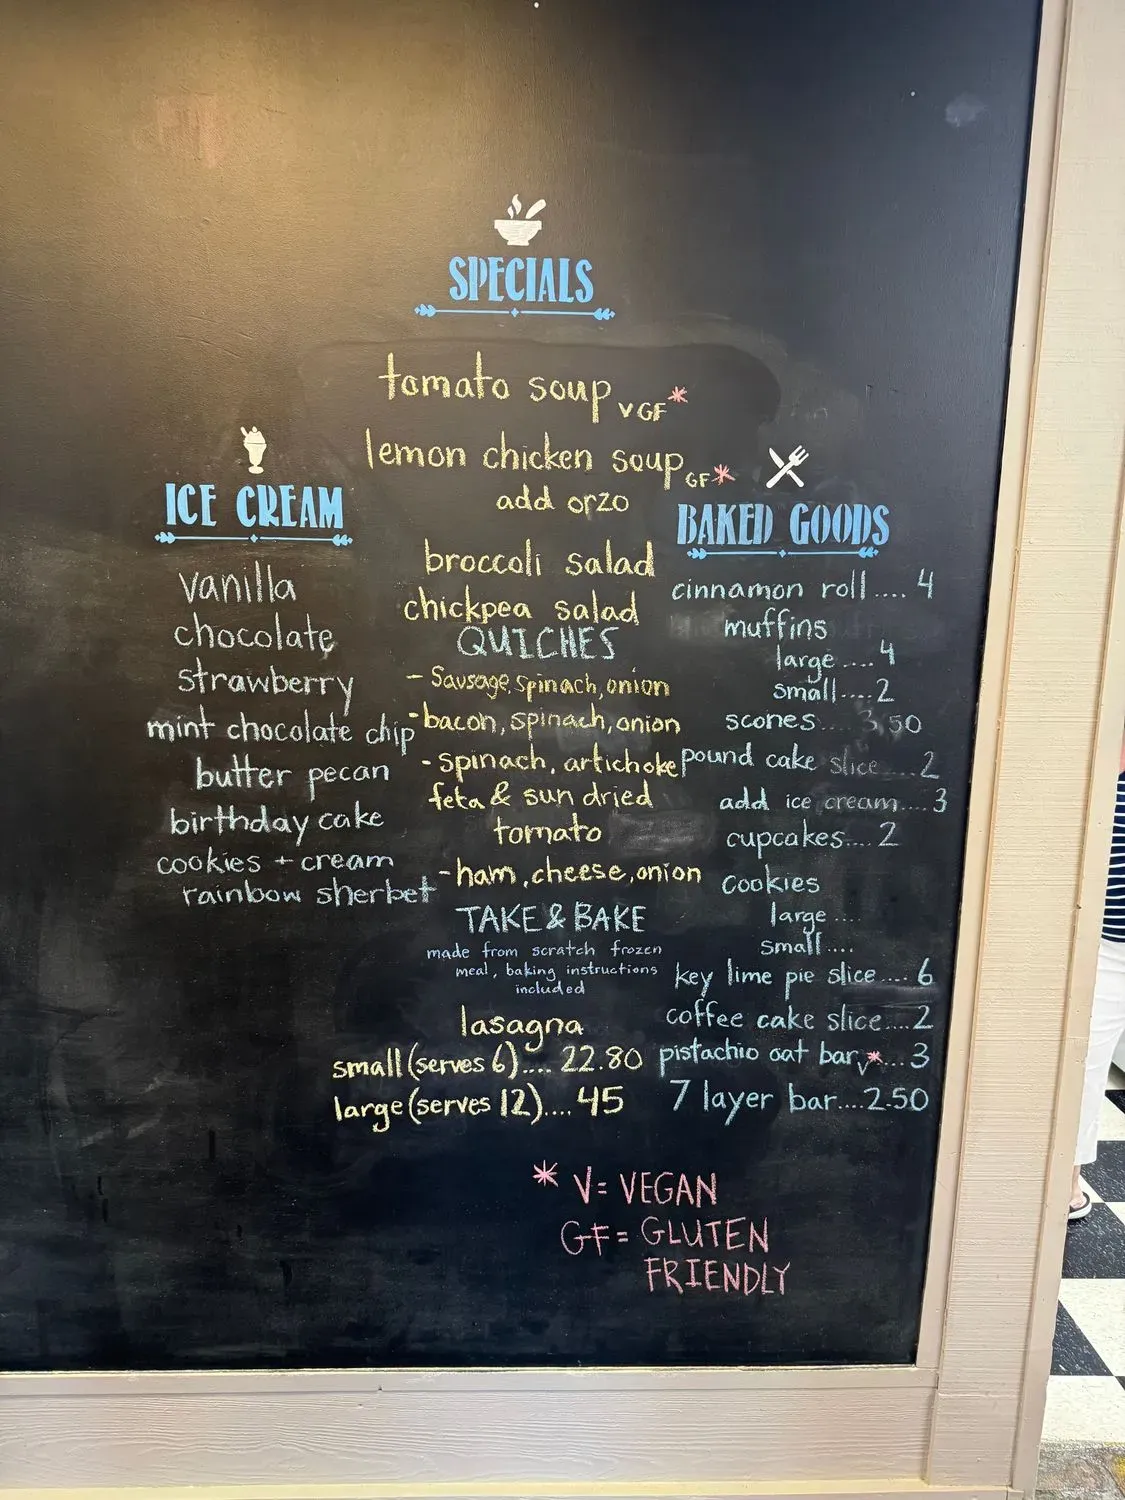 SPECIALS
tomato soup V GF*
lemon chicken soup GF*
add orzo
broccoli salad
chickpea salad
QUICHES
- Sausage, spinach, onion
- bacon, spinach, onion
- spinach, artichoke
feta & sun dried
tomato
- ham, cheese, onion
TAKE & BAKE
made from scratch frozen
meal, baking instructions
included
lasagna
small (serves 6).... 22.80
large (serves 12).... 45
ICE CREAM
vanilla
chocolate
strawberry
mint chocolate chip
butter pecan
birthday cake
cookies + cream
rainbow sherbet
BAKED GOODS
cinnamon roll.... 4
muffins
large.... 4
small.... 2
scones.... 3.50
pound cake slice.... 2
add ice cream.... 3
cupcakes... 2
cookies
large ....
small ....
key lime pie slice.... 6
coffee cake slice.... 2
pistachio oat bar V*.... 3
7 layer bar.... 2.50
* V = VEGAN
GF = GLUTEN
FRIENDLY